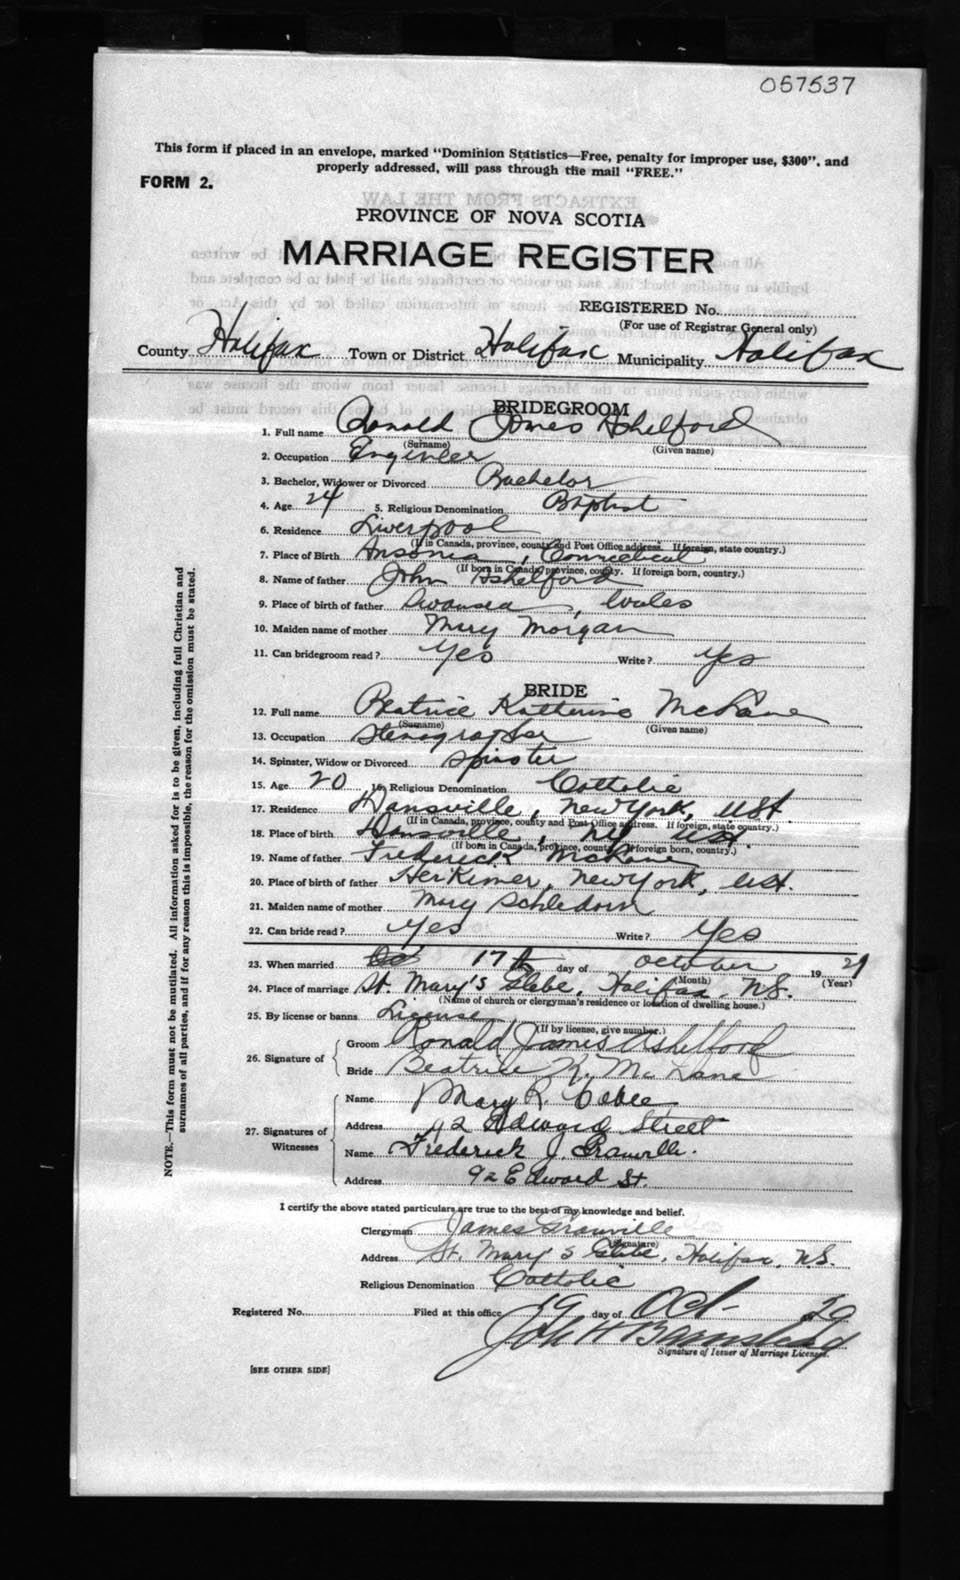 057537
This form if placed in an envelope, marked "Dominion Statistics—Free, penalty for improper use, $300", and
properly addressed, will pass through the mail "FREE."
FORM 2.
PROVINCE OF NOVA SCOTIA
MARRIAGE REGISTER
REGISTERED No.
(For use of Registrar General only)
County Halifax Town or District Halifax Municipality Halifax
BRIDEGROOM
1. Full name Ronald James Ashelford
(Surname) (Given name)
2. Occupation Engineer
3. Bachelor, Widower or Divorced Bachelor
4. Age 24 5. Religious Denomination Baptist
6. Residence Liverpool
(If in Canada, province, county and Post Office address. If foreign, state country.)
7. Place of Birth Ansonia, Connecticut
(If born in Canada, province, county. If foreign born, country.)
8. Name of father John Ashelford
9. Place of birth of father Swansea, Wales
10. Maiden name of mother Mary Morgan
11. Can bridegroom read? Yes Write? Yes
BRIDE
12. Full name Beatrice Katherine McKane
(Surname) (Given name)
13. Occupation Stenographer
14. Spinster, Widow or Divorced Spinster
15. Age 20 16. Religious Denomination Catholic
17. Residence Dansville, New York, USA.
(If in Canada, province, county and Post Office address. If foreign, state country.)
18. Place of birth Dansville, NY USA.
(If born in Canada, province, county. If foreign born, country.)
19. Name of father Frederick McKane
20. Place of birth of father Herkimer, New York, USA.
21. Maiden name of mother Mary
22. Can bride read? Yes Write? Yes
23. When married 17th day of October 1929
(Month) (Year)
24. Place of marriage St. Mary's Glebe, Halifax, N.S.
(Name of church or clergyman's residence or location of dwelling house.)
25. By license or banns License
(If by license, give number.)
26. Signature of
Groom Ronald James Ashelford
Bride Beatrice K. McKane
27. Signatures of Witnesses
Name Mary R.
Address 92 Edward Street
Name Frederick J. Granville.
Address 92 Edward St.
I certify the above stated particulars are true to the best of my knowledge and belief.
Clergyman James Granville
(Signature)
Address St. Mary's Glebe, Halifax, N.S.
Religious Denomination Catholic
Registered No. Filed at this office 19 day of Oct 29
Signature of Issuer of Marriage Licenses.
[SEE OTHER SIDE]
NOTE.—This form must not be mutilated. All information asked for is to be given, including full Christian and
surnames of all parties, and if for any reason this is impossible, the reason for the omission must be stated.